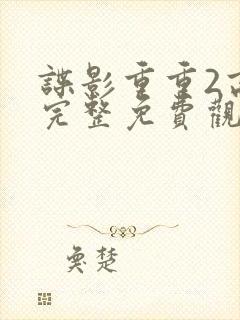 諜影重重2高
完整免費觀
奐楚